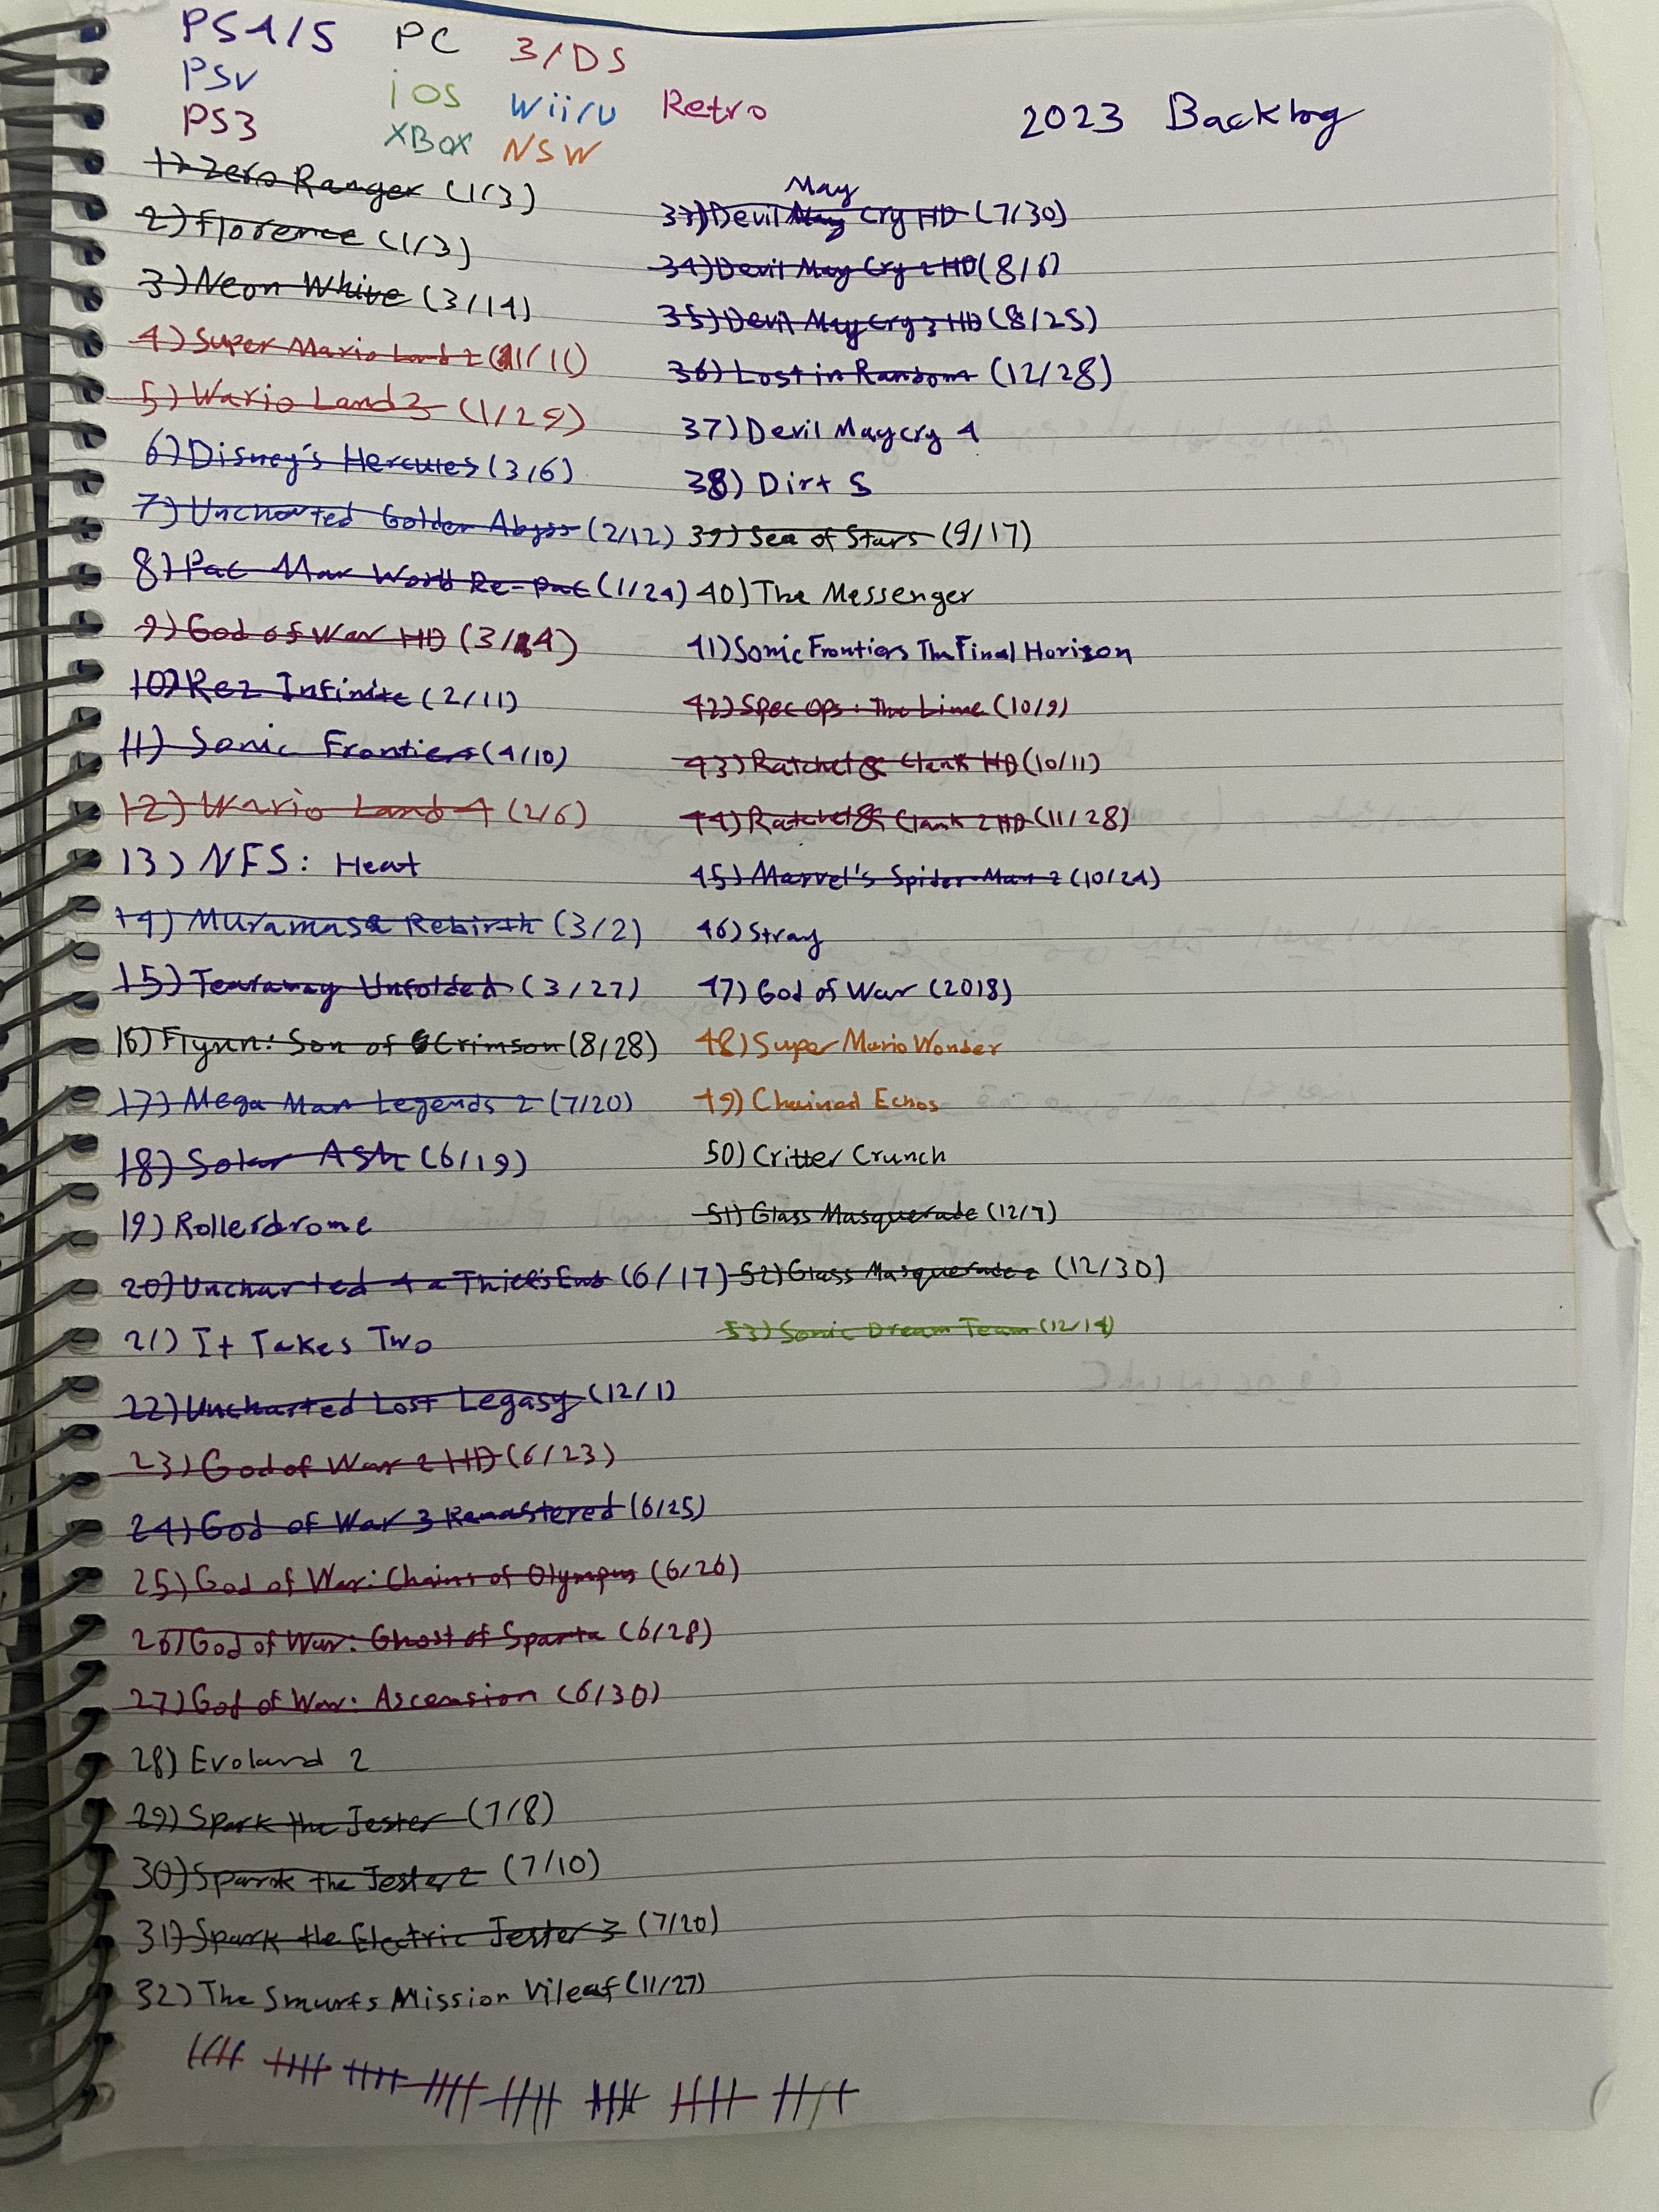 PS4/5 PC 3/DS
PSV iOS Wii/U Retro
PS3 XBox NSW
2023 Backlog
1) Zero Ranger (1/3)
2) Florence (1/3)
3) Neon White (3/14)
4) Super Mario Land 2 (1/11)
5) Wario Land 3 (1/29)
6) Disney's Hercules (3/6)
7) Uncharted Golden Abyss (2/12)
8) Pac Man World Re-Pac (1/24)
9) God of War HD (3/14)
10) Rez Infinite (2/11)
11) Sonic Frontiers (4/10)
12) Wario Land 4 (2/6)
13) NFS: Heat
14) Muramasa Rebirth (3/2)
15) Tearaway Unfolded (3/27)
16) Flynn: Son of Crimson (8/28)
17) Mega Man Legends 2 (7/20)
18) Solar Ash (6/19)
19) Rollerdrome
20) Uncharted 4 a Thief's End (6/17)
21) It Takes Two
22) Uncharted Lost Legasy (12/1)
23) God of War 2 HD (6/23)
24) God of War 3 Remastered (6/25)
25) God of War: Chains of Olympus (6/26)
26) God of War: Ghost of Sparta (6/28)
27) God of War: Ascension (6/30)
28) Evoland 2
29) Spark the Jester (7/8)
30) Spark the Jester 2 (7/10)
31) Spark the Electric Jester 3 (7/20)
32) The Smurfs Mission Vileaf (11/27)
May
33) Devil May Cry HD (7/30)
34) Devil May Cry 2 HD (8/6)
35) Devil May Cry 3 HD (8/25)
36) Lost in Random (12/28)
37) Devil May cry 4
38) Dirt 5
39) Sea of Stars (9/17)
40) The Messenger
41) Sonic Frontiers The Final Horizon
42) Spec Ops: The Line (10/9)
43) Ratchet & Clank HD (10/11)
44) Ratchet & Clank 2 HD (11/28)
45) Marvel's Spider-Man 2 (10/24)
46) Stray
47) God of War (2018)
48) Super Mario Wonder
49) Chained Echos
50) Critter Crunch
51) Glass Masquerade (12/7)
52) Glass Masquerade 2 (12/30)
53) Sonic Dream Team (12/14)